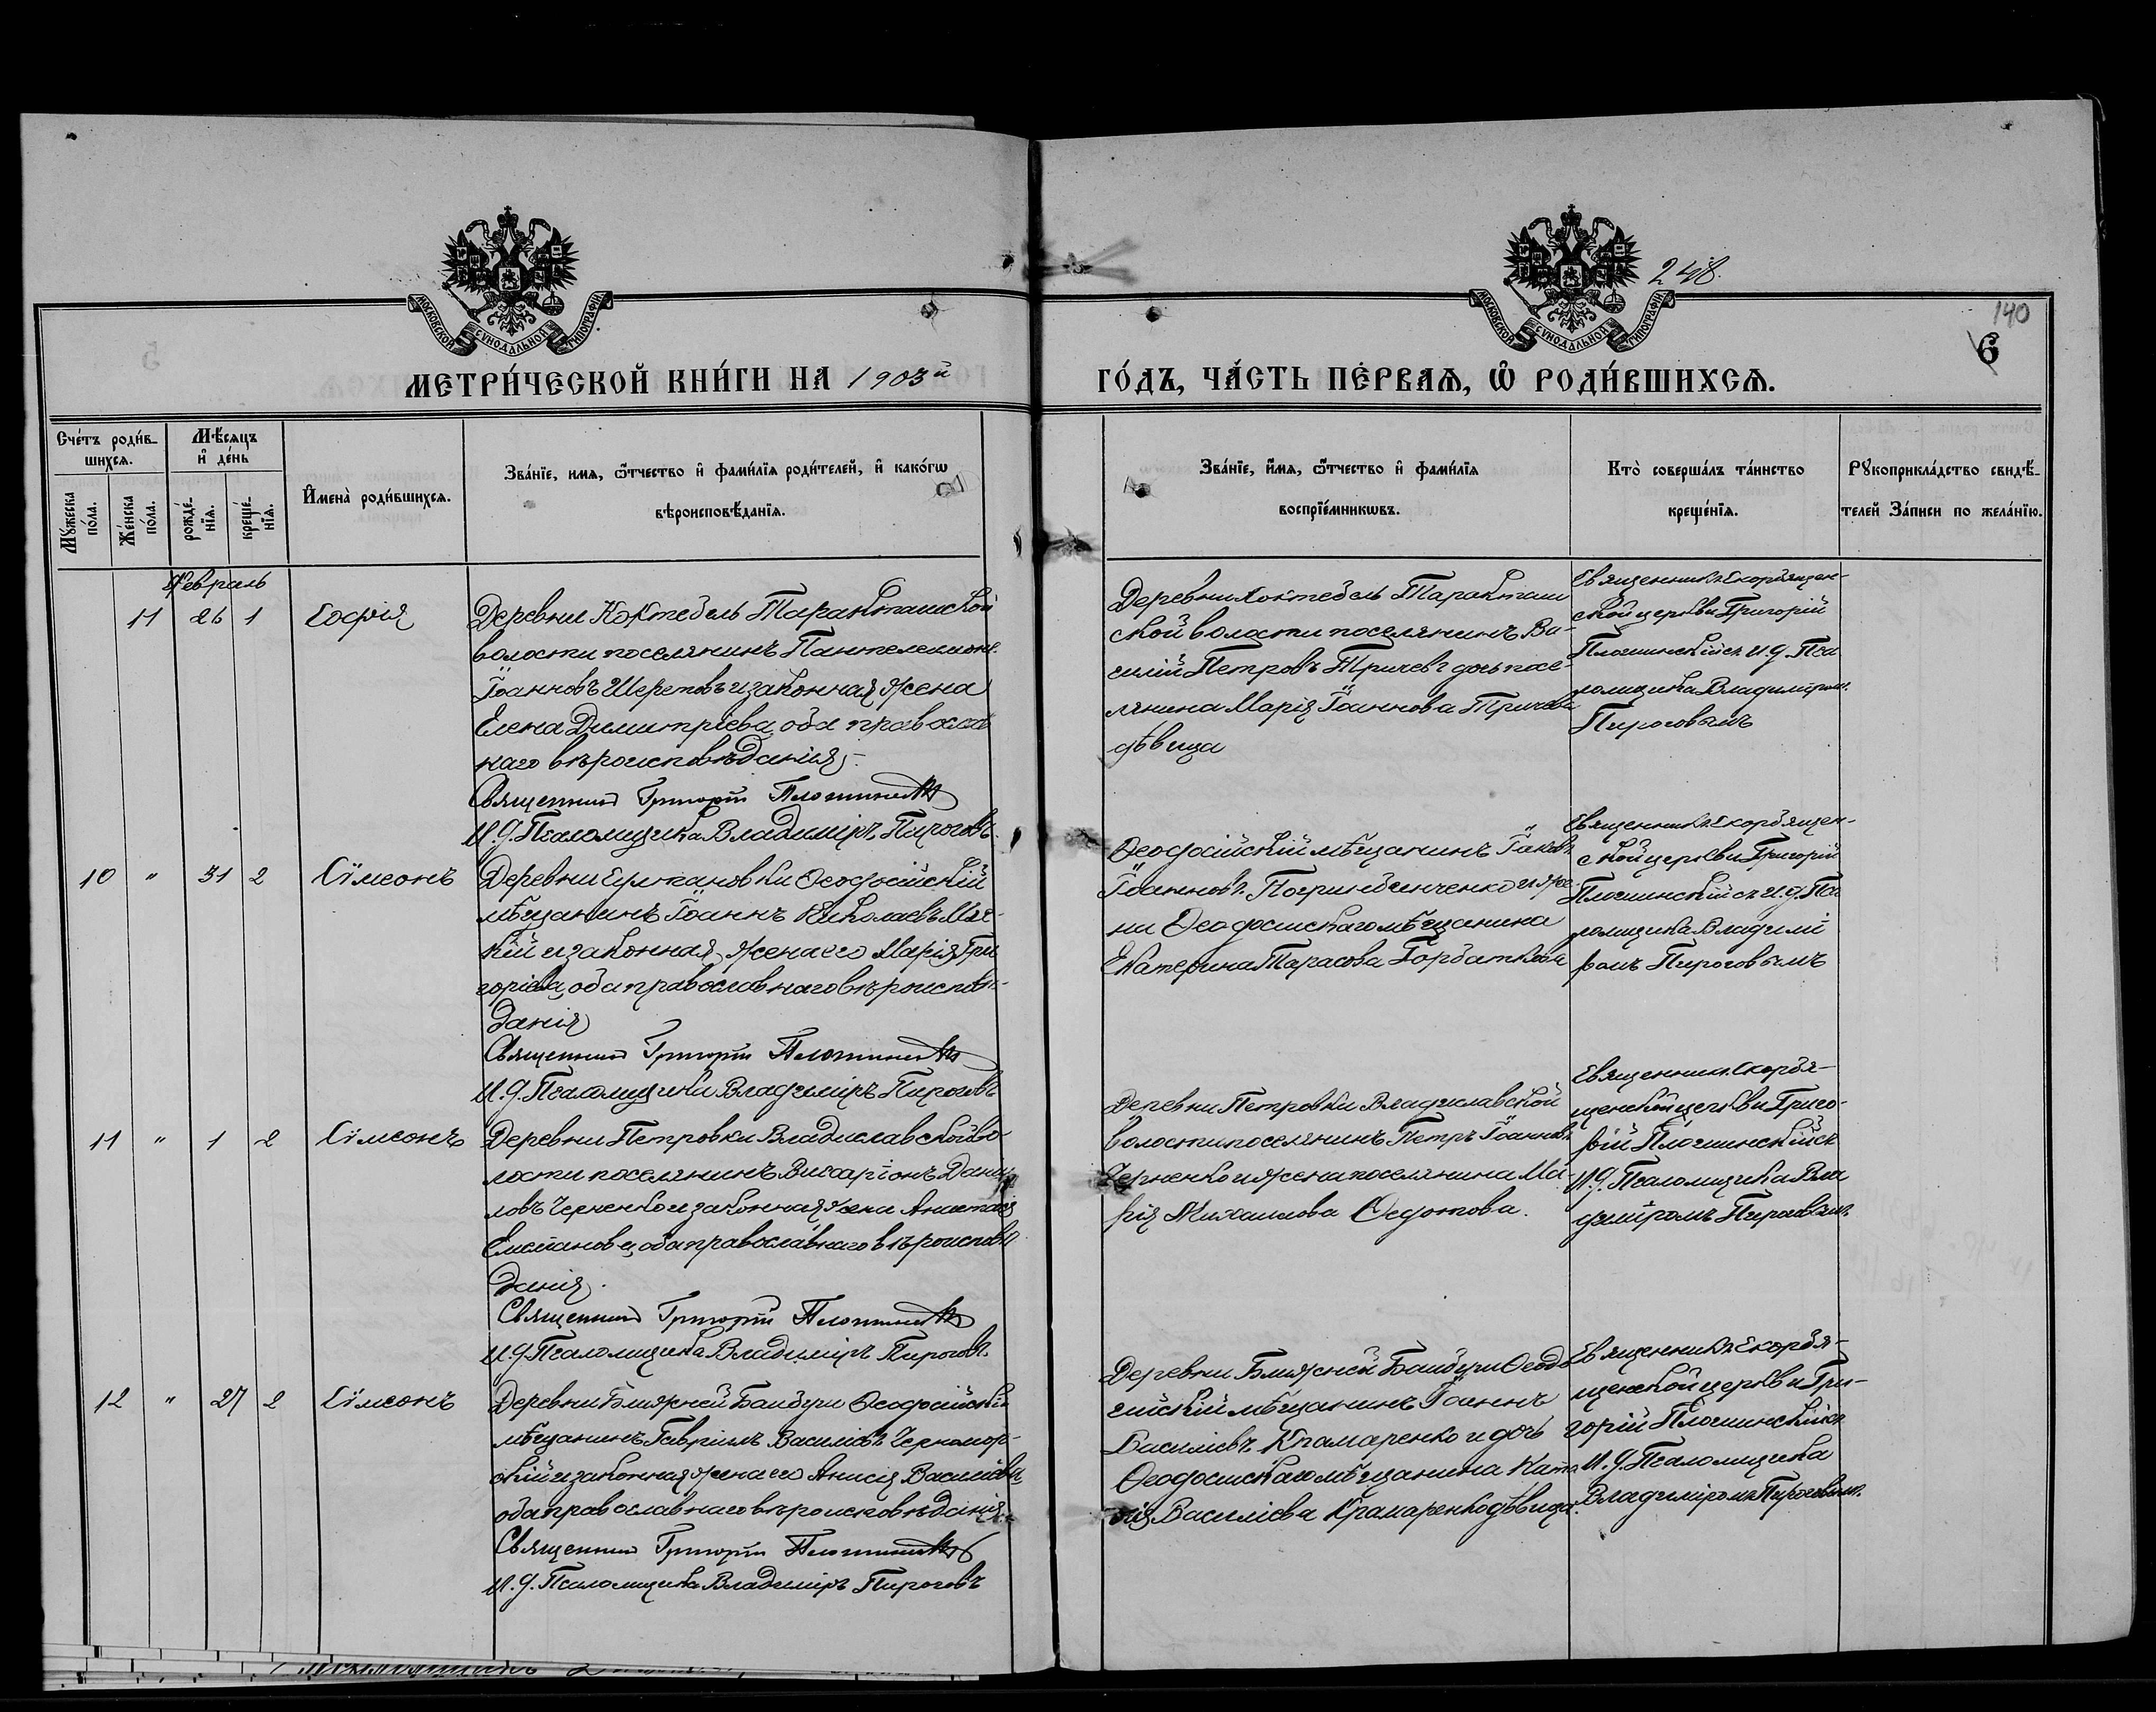 248.
140
6
МОСКОВСКОЙ СѴНОДАЛЬНОЙ ТИПОГРАФІИ
МОСКОВСКОЙ СѴНОДАЛЬНОЙ ТИПОГРАФІИ
МЕТРИ́ЧЕСКОЙ КНИ́ГИ НА 1903й
ГО́ДЪ, ЧА́СТЬ ПЕ́РВАѦ, Ѡ҆ РОДИ́ВШИХСѦ.
Сче́тъ роди́в-
шихсѧ.
Мѣ́сѧцъ
и҆ де́нь
Мꙋ́жеска
по́ла.
Же́нска
по́ла.
рожде́-
нїѧ.
креще́-
нїѧ.
И҆мена̀ роди́вшихсѧ.
Зва́нїе, имѧ, ѻ҆́тчество и҆ фами́лїѧ роди́телей, и҆ како́гѡ
вѣроисповѣ́данїѧ.
Зва́нїе, и҆́мѧ, ѻ҆́тчество и҆ фами́лїѧ
воспрїе́мникѡвъ.
Кто̀ соверша́лъ та́инство
креще́нїѧ.
Рꙋкоприкла́дство свидѣ́-
телей за́писи по жела́нїю.
Февраль
11 26 1 Софія
Деревни Коктебель Таракташской
волости поселянинъ Пантелеимонъ
Іоанновъ Шереповъ и законная жена
Елена Димитріева, оба православ
наго вѣроисповѣданія.
Священникъ Григорій Плошинскій
И. д. Псаломщика Владиміръ Пироговъ.
Деревни Коктебель Таракташ
ской волости поселянинъ Ва-
силій Петровъ Тричевъ дочь посе-
лянина Марія Іоаннова Тричева
дѣвица
Священникъ Скорбящен-
ской церкви Григорій
Плошинскій съ И. д. Пса
ломщика Владиміромъ
Пироговымъ
10 " 31 2 Сѵмеонъ
Деревни Султановки Ѳеодосійскій
мѣщанинъ Іоаннъ Николаевъ
и законная жена его Марія Гри
горіева, оба православнаго вѣроисповѣ-
данія
Священникъ Григорій Плошинскій
И. д. Псаломщика Владиміръ Пироговъ
Ѳеодосійскій мѣщанинъ Іаковъ
Іоанновъ и же-
на Ѳеодосійскаго мѣщанина
Екатерина Тарасова Горбаткова
Священникъ Скорбящен-
ской церкви Григорій
Плошинскій съ И. д. Пса
ломщика Владимі
ромъ Пироговымъ
11 " 1 2 Сѵмеонъ
Деревни Петровки Владиславской во
лости поселянинъ Виссаріонъ Дани
ловъ Черненко и законная жена Анастасія
Стефанова, оба православнаго вѣроисповѣ
данія.
Священникъ Григорій Плошинскій
И. д. Псаломщика Владиміръ Пироговъ.
Деревни Петровки Владиславской
волости поселянинъ Петръ Іоанновъ
Черненко и жена поселянина Ма
рія Михаилова Ѳедотова.
Священникъ Скорбя-
щенской церкви Григо-
рій Плошинскій съ
И. д. Псаломщика Вла
диміромъ Пироговымъ
12 " 27 2 Сѵмеонъ
Деревни Ближней Байбуги Ѳеодосійскій
мѣщанинъ Гавріилъ Василіевъ Черномор-
скій и законная жена его Анисія Василіева
оба православнаго вѣроисповѣданія.
Священникъ Григорій Плошинскій
И. д. Псаломщика Владиміръ Пироговъ
Деревни Ближней Байбуги Ѳеодо
сійскій мѣщанинъ Іоаннъ
Василіевъ Крамаренко и дочь
Ѳеодосійскаго мѣщанина
Василіева Крамаренко дѣвица.
Священникъ Скорбя-
щенской церкви Гри-
горій Плошинскій съ
И. д. Псаломщика
Владиміромъ Пироговымъ.